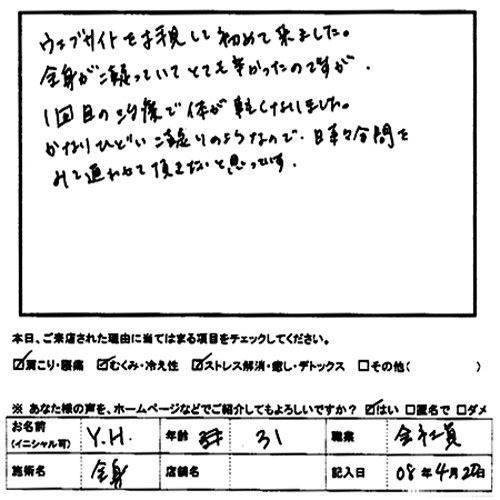 ウェブサイトを拝見して初めて来ました。
全身が凝っていてとても辛かったのですが、
1回目の治療で体が軽くなりました。
かなりひどい凝りのようなので、日々時間を
みて通わせて頂きたいと思ってます。
本日、ご来店された理由に当てはまる項目をチェックしてください。
☑肩こり・腰痛 ☑むくみ・冷え性 ☑ストレス解消・癒し・デトックス □その他( )
※ あなた様の声を、ホームページなどでご紹介してもよろしいですか? ☑はい □匿名で □ダメ
お名前(イニシャル可) Y.H. 年齢 31 職業 会社員
施術名 全身 店舗名 記入日 08年4月20日